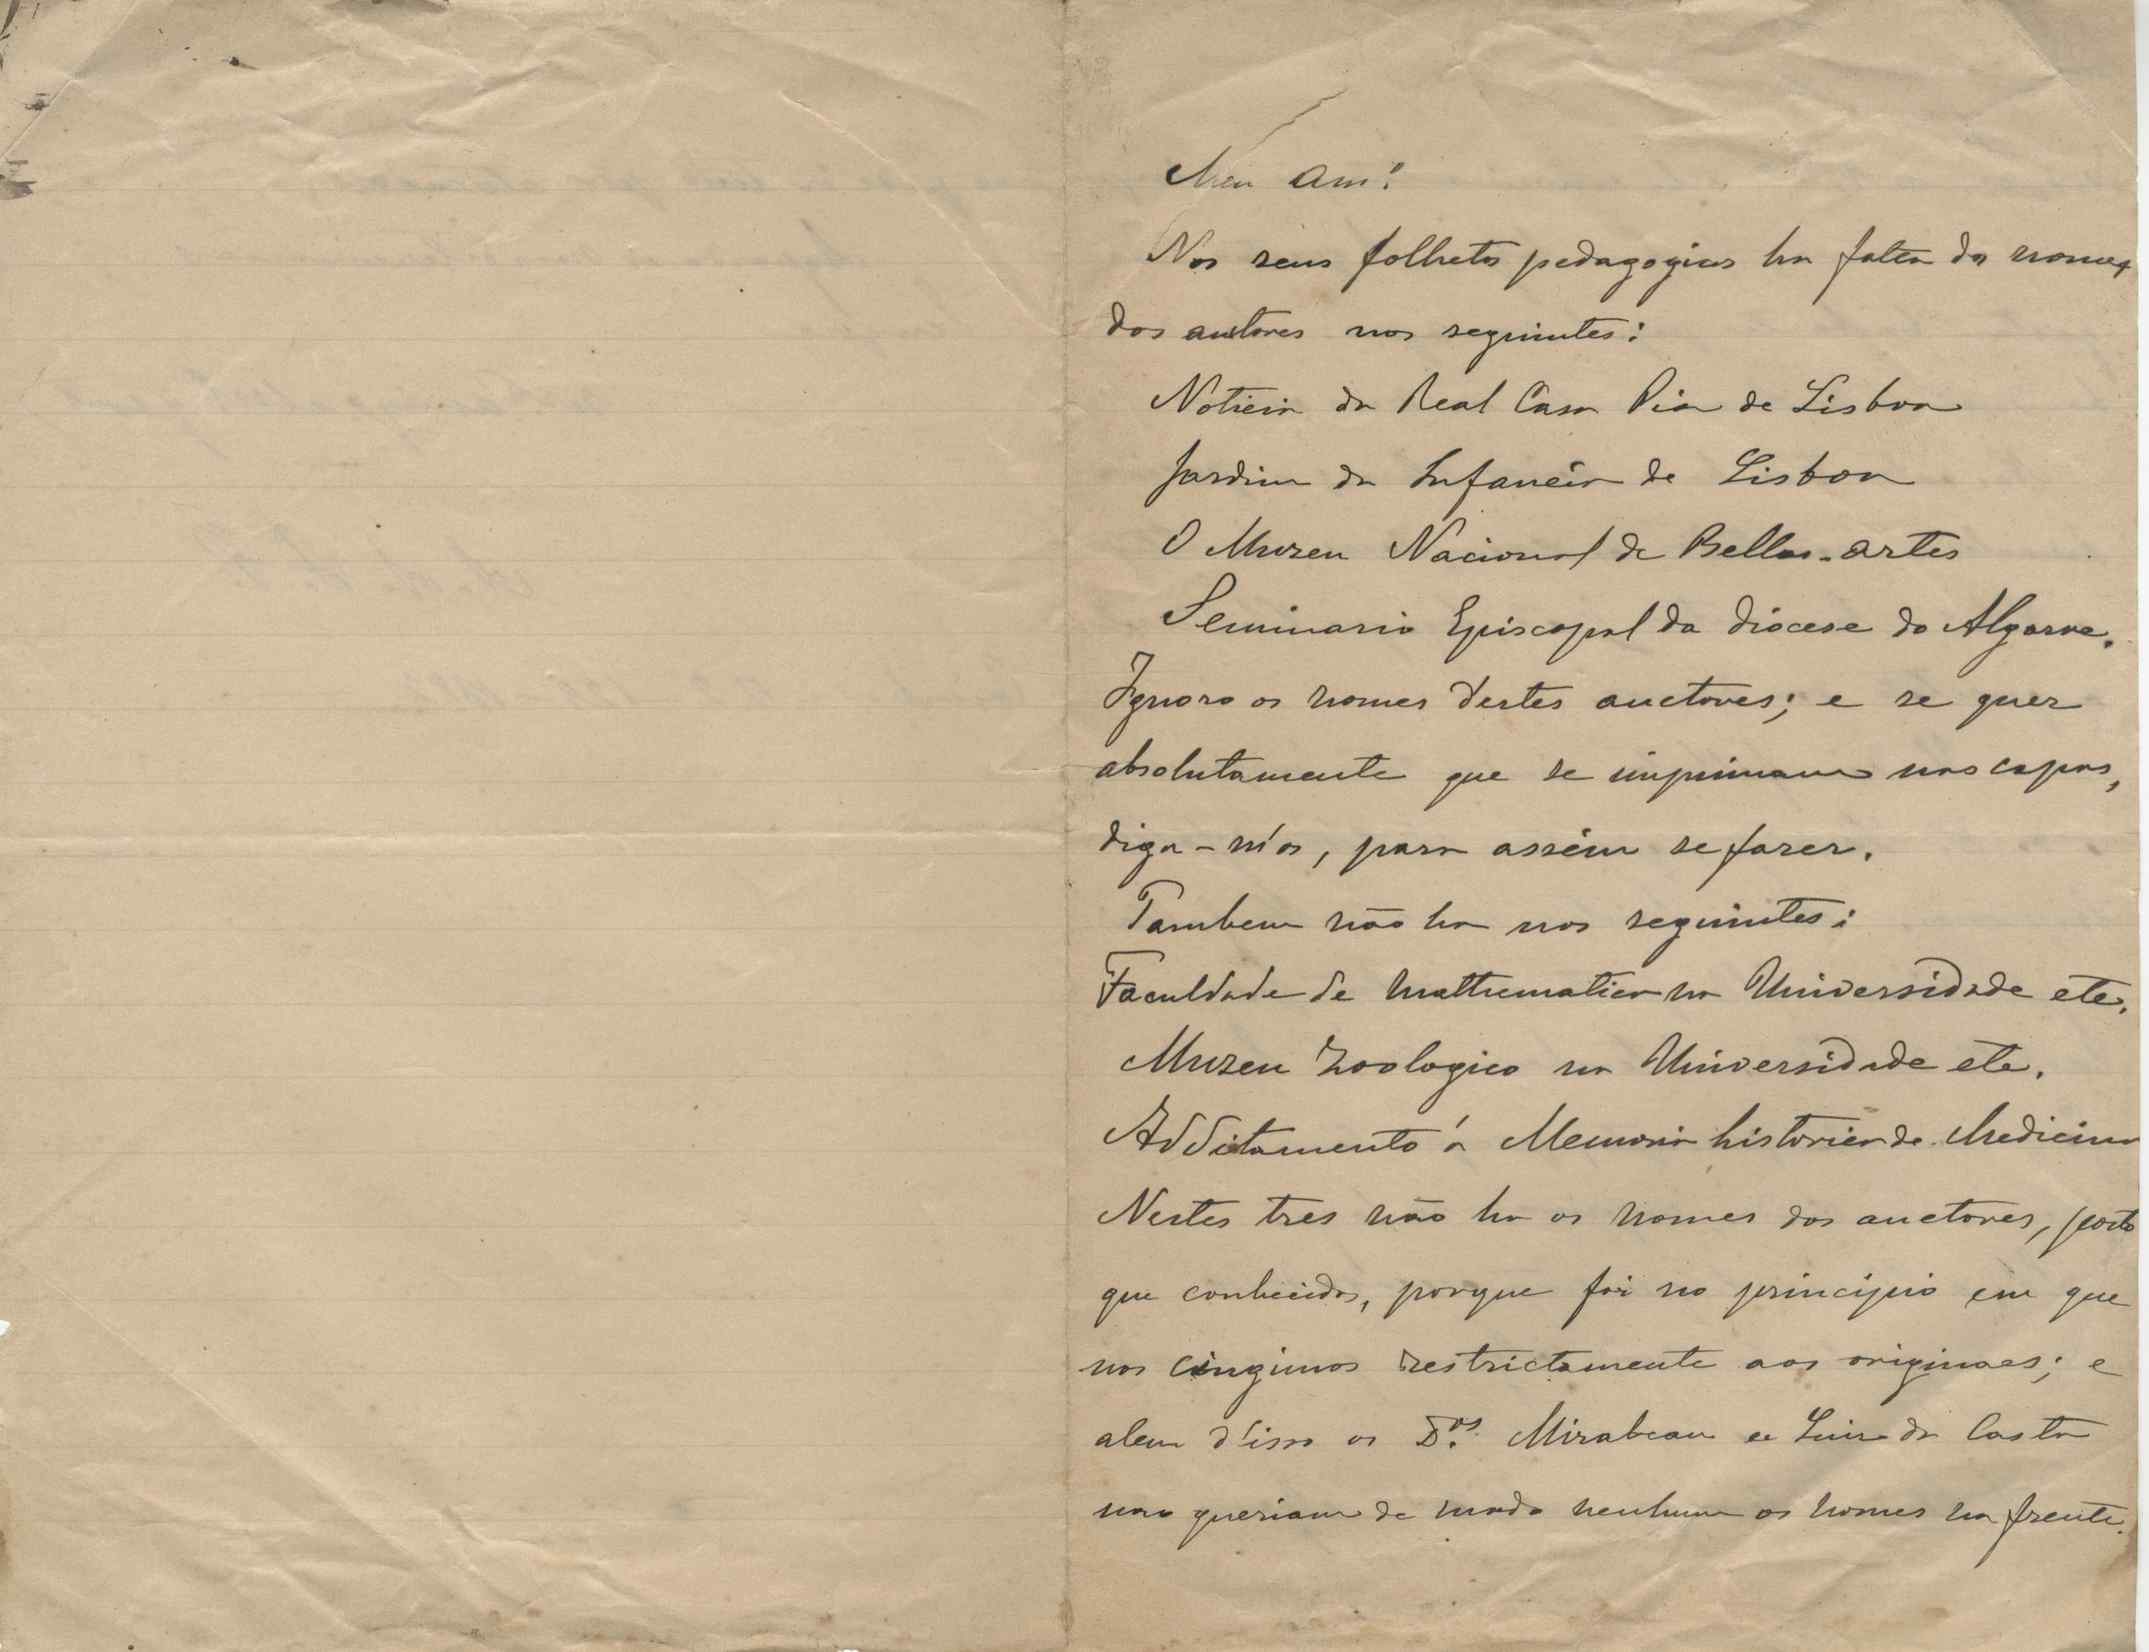 Meu Am.º
Nos seus folhetos pedagogicos ha falta dos nomes
dos auctores nos seguintes:
Noticia da Real Casa Pia de Lisboa
Jardim da Infancia de Lisboa
O Muzeu Nacional de Bellas-artes
Seminario Episcopal da diocese do Algarve.
Ignoro os nomes destes auctores; e se quer
absolutamente que se imprimam nas capas,
diga-m'os, para assim se fazer.
Tambem não ha nos seguintes:
Faculdade de Mathematica na Universidade etc.
Muzeu Zoologico na Universidade etc.
Additamento á Memoria historica de Medicina
Nestes tres não ha os nomes dos auctores, posto
que conhecidos, porque foi no principio em que
nos cingimos restrictamente aos originaes; e
alem d'isso os D.os Mirabeau e Luiz da Costa
nao queriam de modo nenhum os nomes na frente.